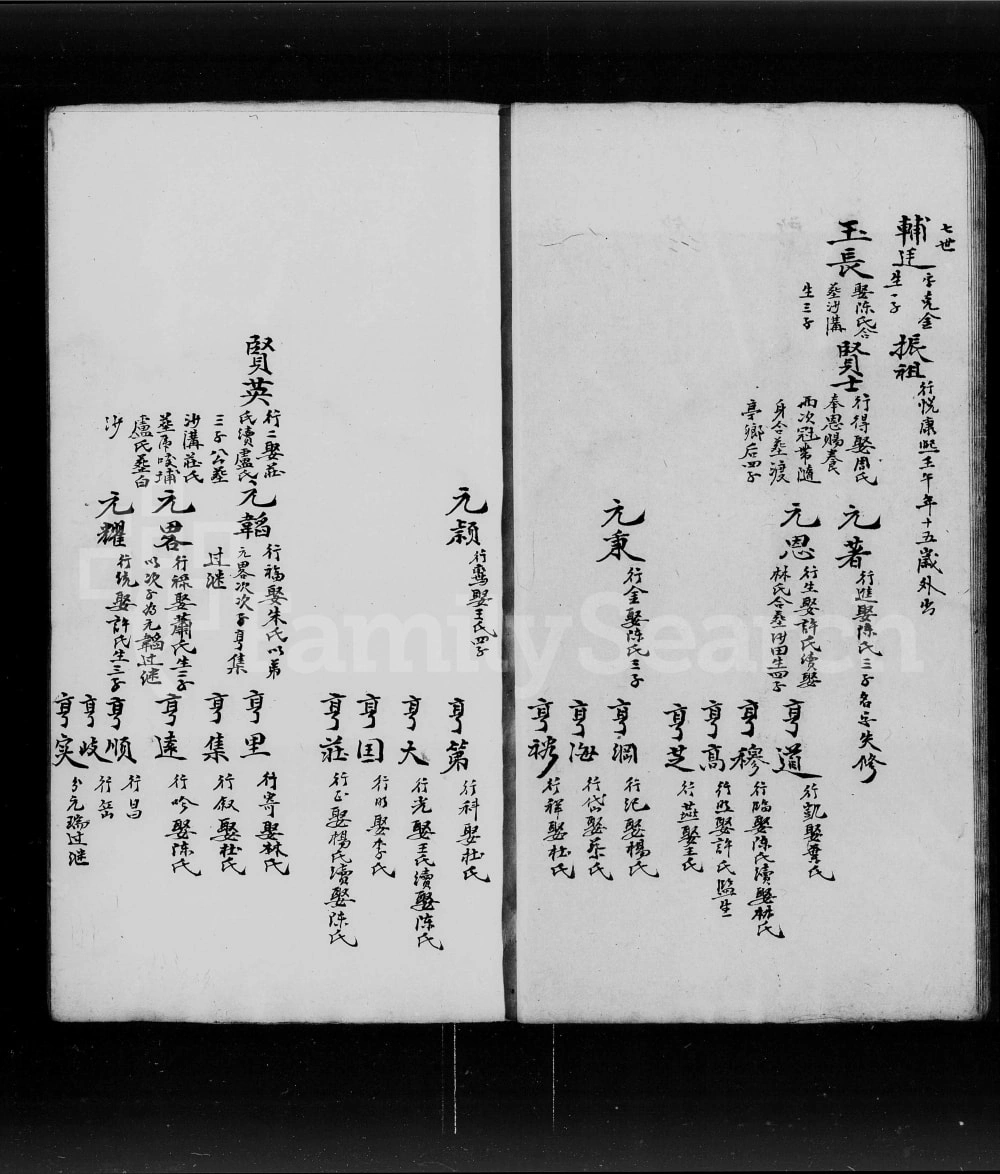 七世
輔廷
字克金
生一子
振祖
行悅康熙壬午年十五歲外出
玉長
娶陳氏合
葬沙溝
生三子
賢士
行得娶周氏
奉恩賜養
兩次冠帶隨
身合葬渡
亭鄉后四子
元著
行進娶陳氏三子名呈失修
元恩
行生娶許氏續娶
林氏合葬沙田生四子
亨道
行凱娶龔氏
亨穆
行臨娶陳氏續娶林氏
亨高
行照娶許氏監生
亨芝
行燕娶王氏
元秉
行金娶陳氏三子
亨綱
行紀娶楊氏
亨海
行岱娶蔡氏
亨裕
行禪娶杜氏
元穎
行鸞娶王氏四子
亨第
行科娶杜氏
亨大
行光娶王氏續娶陳氏
亨国
行明娶李氏
亨莊
行正娶楊氏續娶陳氏
賢英
行二娶莊
氏續盧氏
三子公葬
沙溝莊氏
葬后埔
盧氏葬白
沙
元韜
行福娶朱氏以弟
元畧次次子亨集
过继
亨里
行寄娶林氏
亨集
行叙娶杜氏
元畧
行祿娶蕭氏生三子
以次子为元韜过继
亨遠
行吟娶陳氏
元耀
行統娶許氏生三子
亨順
行昌
亨岐
行岳
亨实
分元瑞过继
FamilySearch